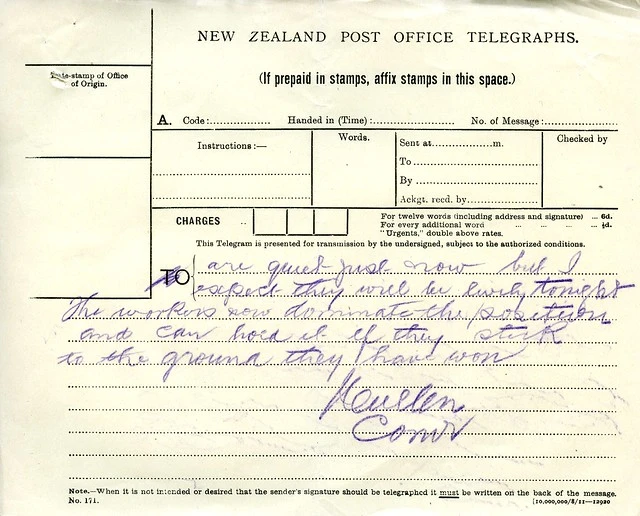 NEW ZEALAND POST OFFICE TELEGRAPHS.
(If prepaid in stamps, affix stamps in this space.)
Date-stamp of Office
of Origin.
A. Code:
Handed in (Time):
No. of Message:
Instructions:—
Words.
Sent at m.
To
By
Ackgt. recd. by
Checked by
CHARGES ..
For twelve words (including address and signature) ... 6d.
For every additional word ... ... ... ½d.
"Urgents," double above rates.
This Telegram is presented for transmission by the undersigned, subject to the authorized conditions.
TO
are quiet just now but I
expect they will be lively tonight
The workers now dominate the position
and can hold it if they stick
to the ground they have won
Note.—When it is not intended or desired that the sender's signature should be telegraphed it must be written on the back of the message.
No. 171.
[10,000,000/8/11—12930